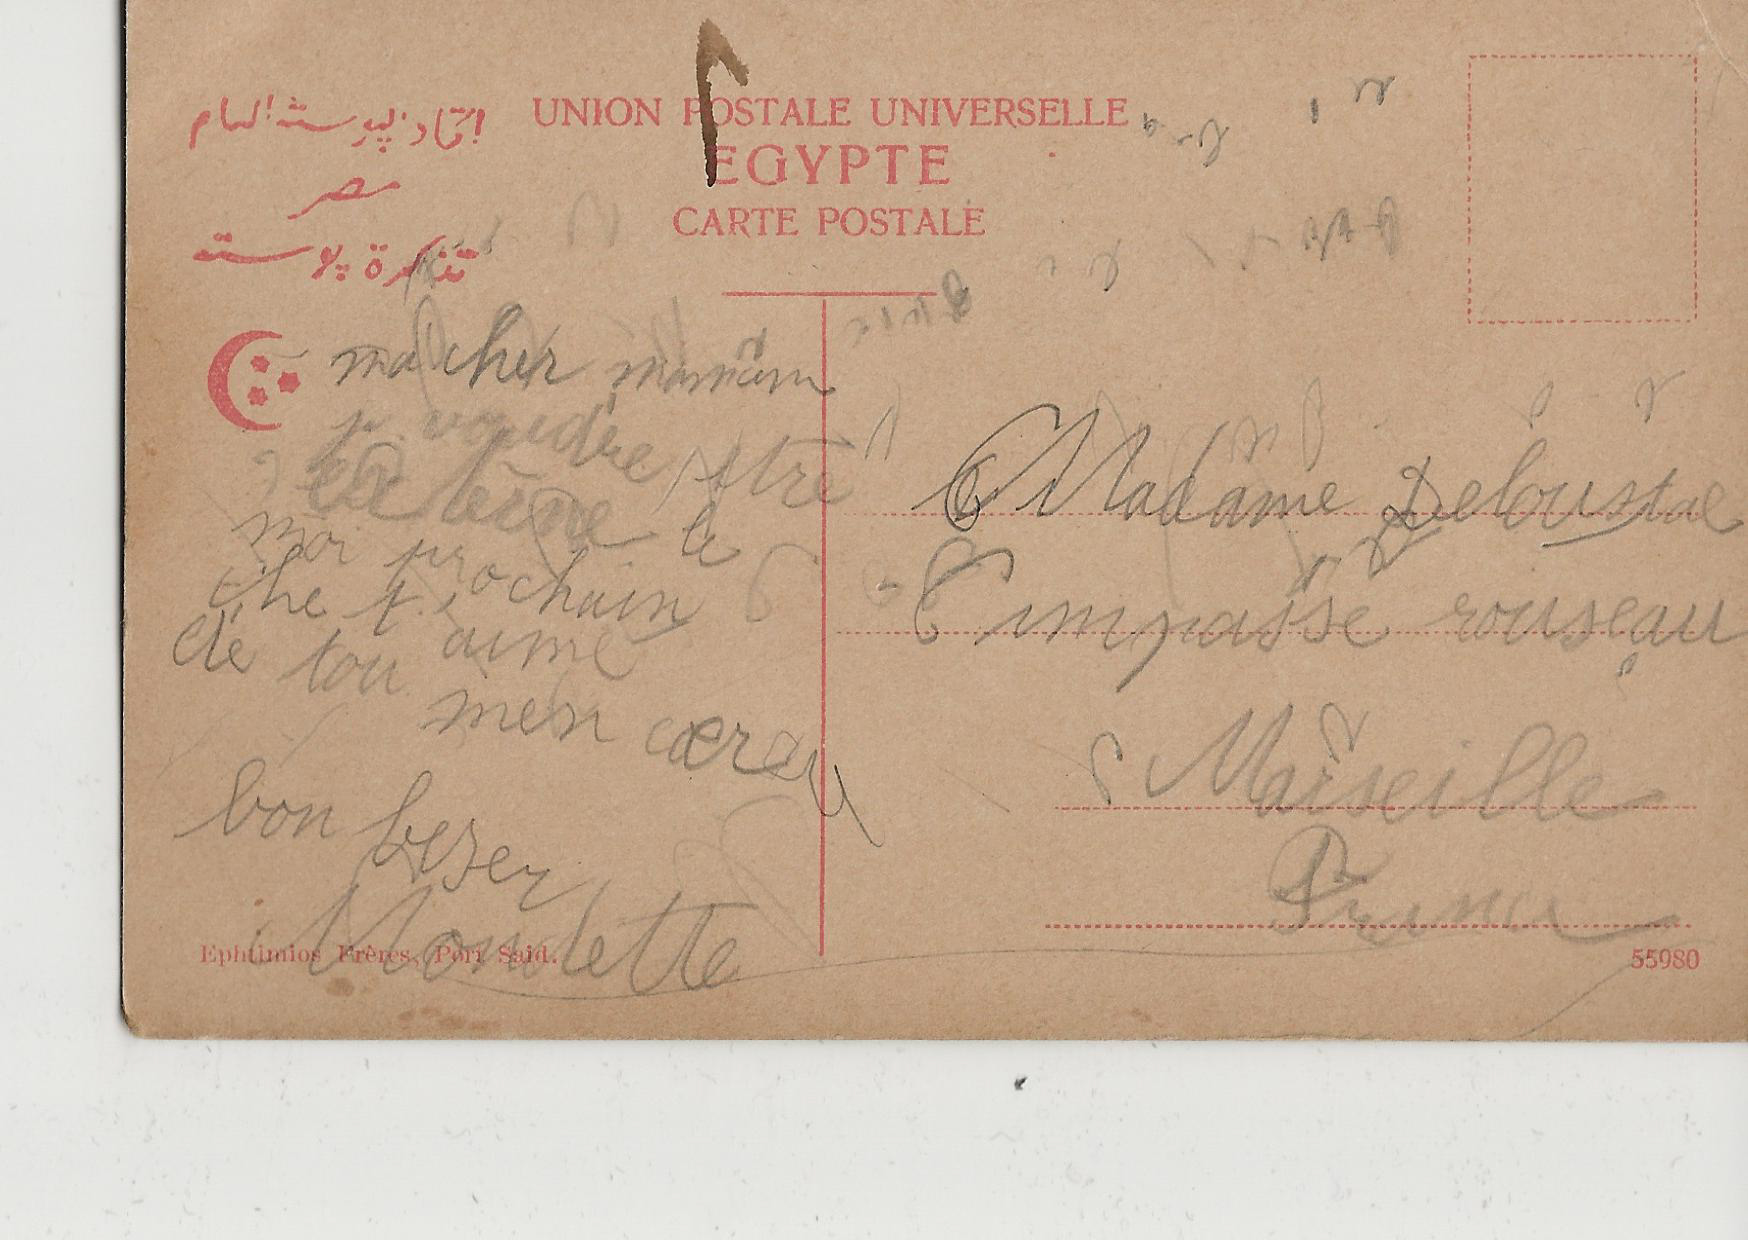 اتحاد البوسته العام
مصر
تذكرة بوسته
UNION POSTALE UNIVERSELLE
EGYPTE
CARTE POSTALE
ma cher maman
je voudre être
la
moi prochain
che t'aime
dé tou
mon
bon beser
Madame Deloustal
impasse rouseau
Marseille
France
Ephtimios Frères, Port Said.
55980